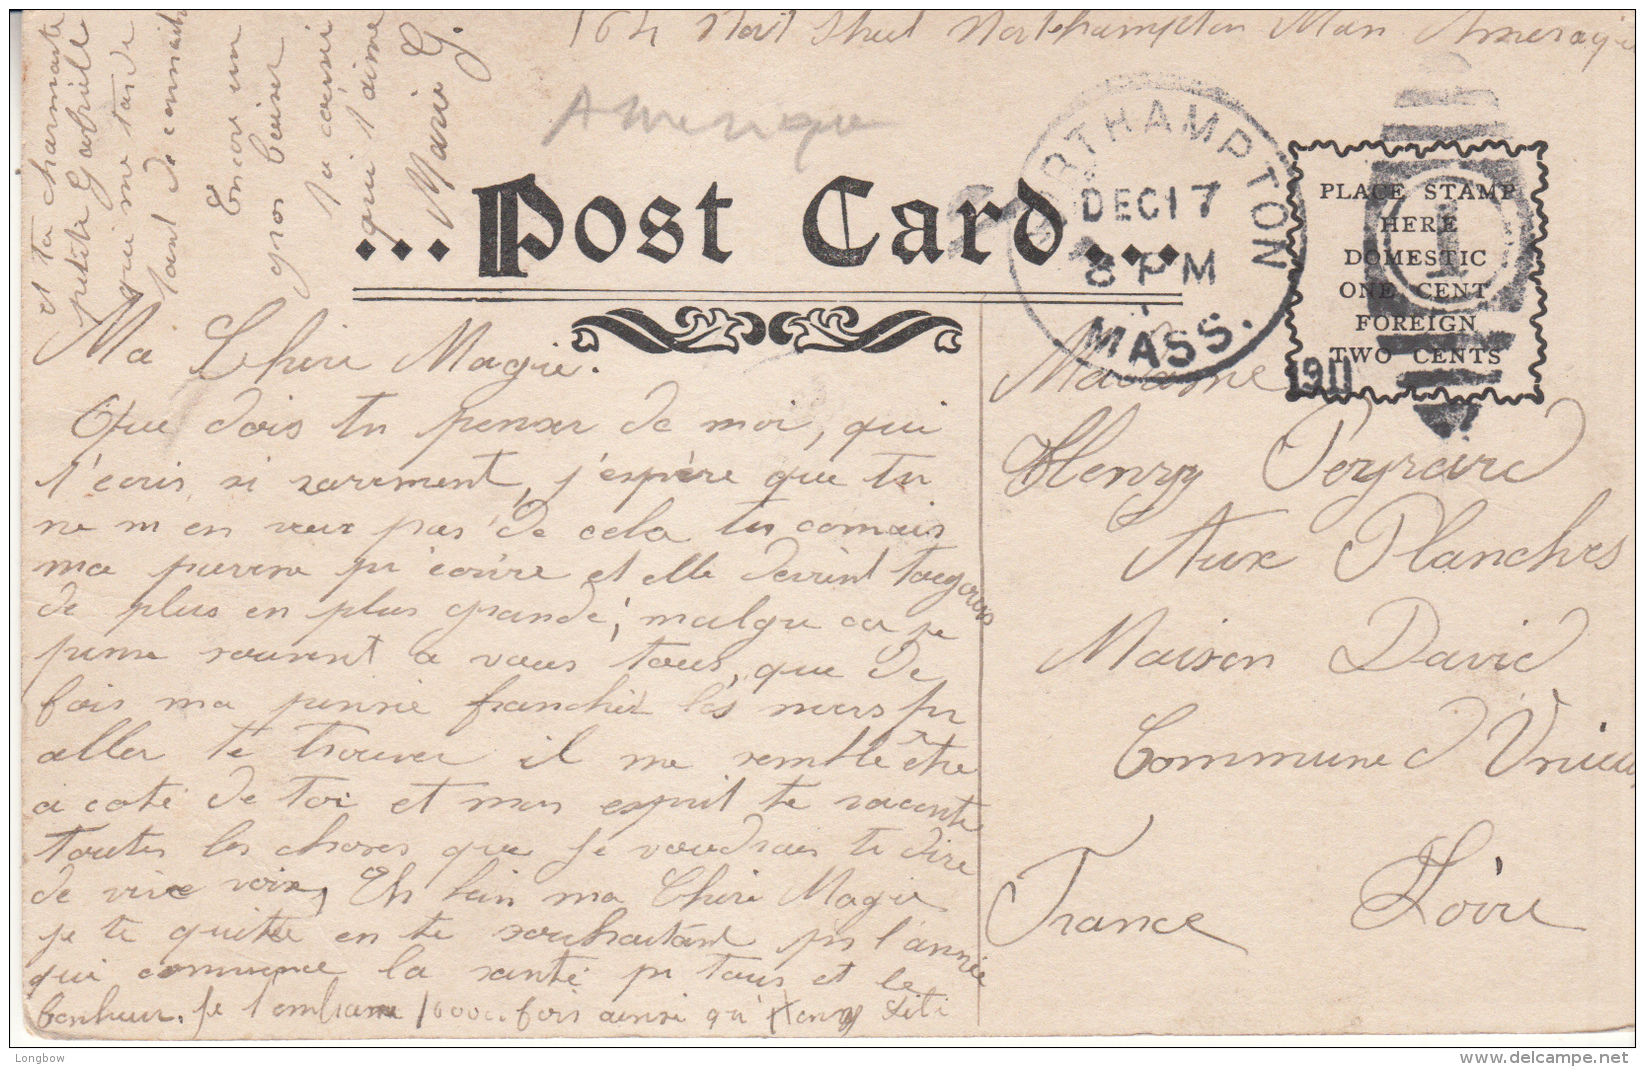 164 Nort Street Northampton Mass Amerique
Amerique
...Post Card...
NORTHAMPTON
DEC 17
8 PM
MASS.
1911
1
PLACE STAMP
HERE
DOMESTIC
ONE CENT
FOREIGN
TWO CENTS
Ma Chere Magie.
Que dois tu penser de moi, qui
t'ecris si rarement, j'espère que tu
ne m en veux pas de cela tu connais
ma pr ecrire et elle devient toujours
de plus en plus grande, malgre ca je
pense souvent a vous tous, que de
fois ma pensée franchit les mers pr
aller te trouver il me semble être
a coté de toi et mon esprit te raconte
toutes les choses que je voudrais te dire
de vive voix, Eh bien ma Chere Magie
je te quitte en te souhaitant pr l'année
qui commence la santé pr tous et le
bonheur. je t'embrasse 1000 fois ainsi qu'Henry Titi
et ta charmante
petite Gabrielle
qui me tarde
tant de connaitre
Encore un
gros baiser
Ta cousine
qui t'aime
Marie G.
Madame
Henry Peyrard
Aux Planches
Maison David
Commune d'Unieux
Loire
France
Longbow
delcampe.net